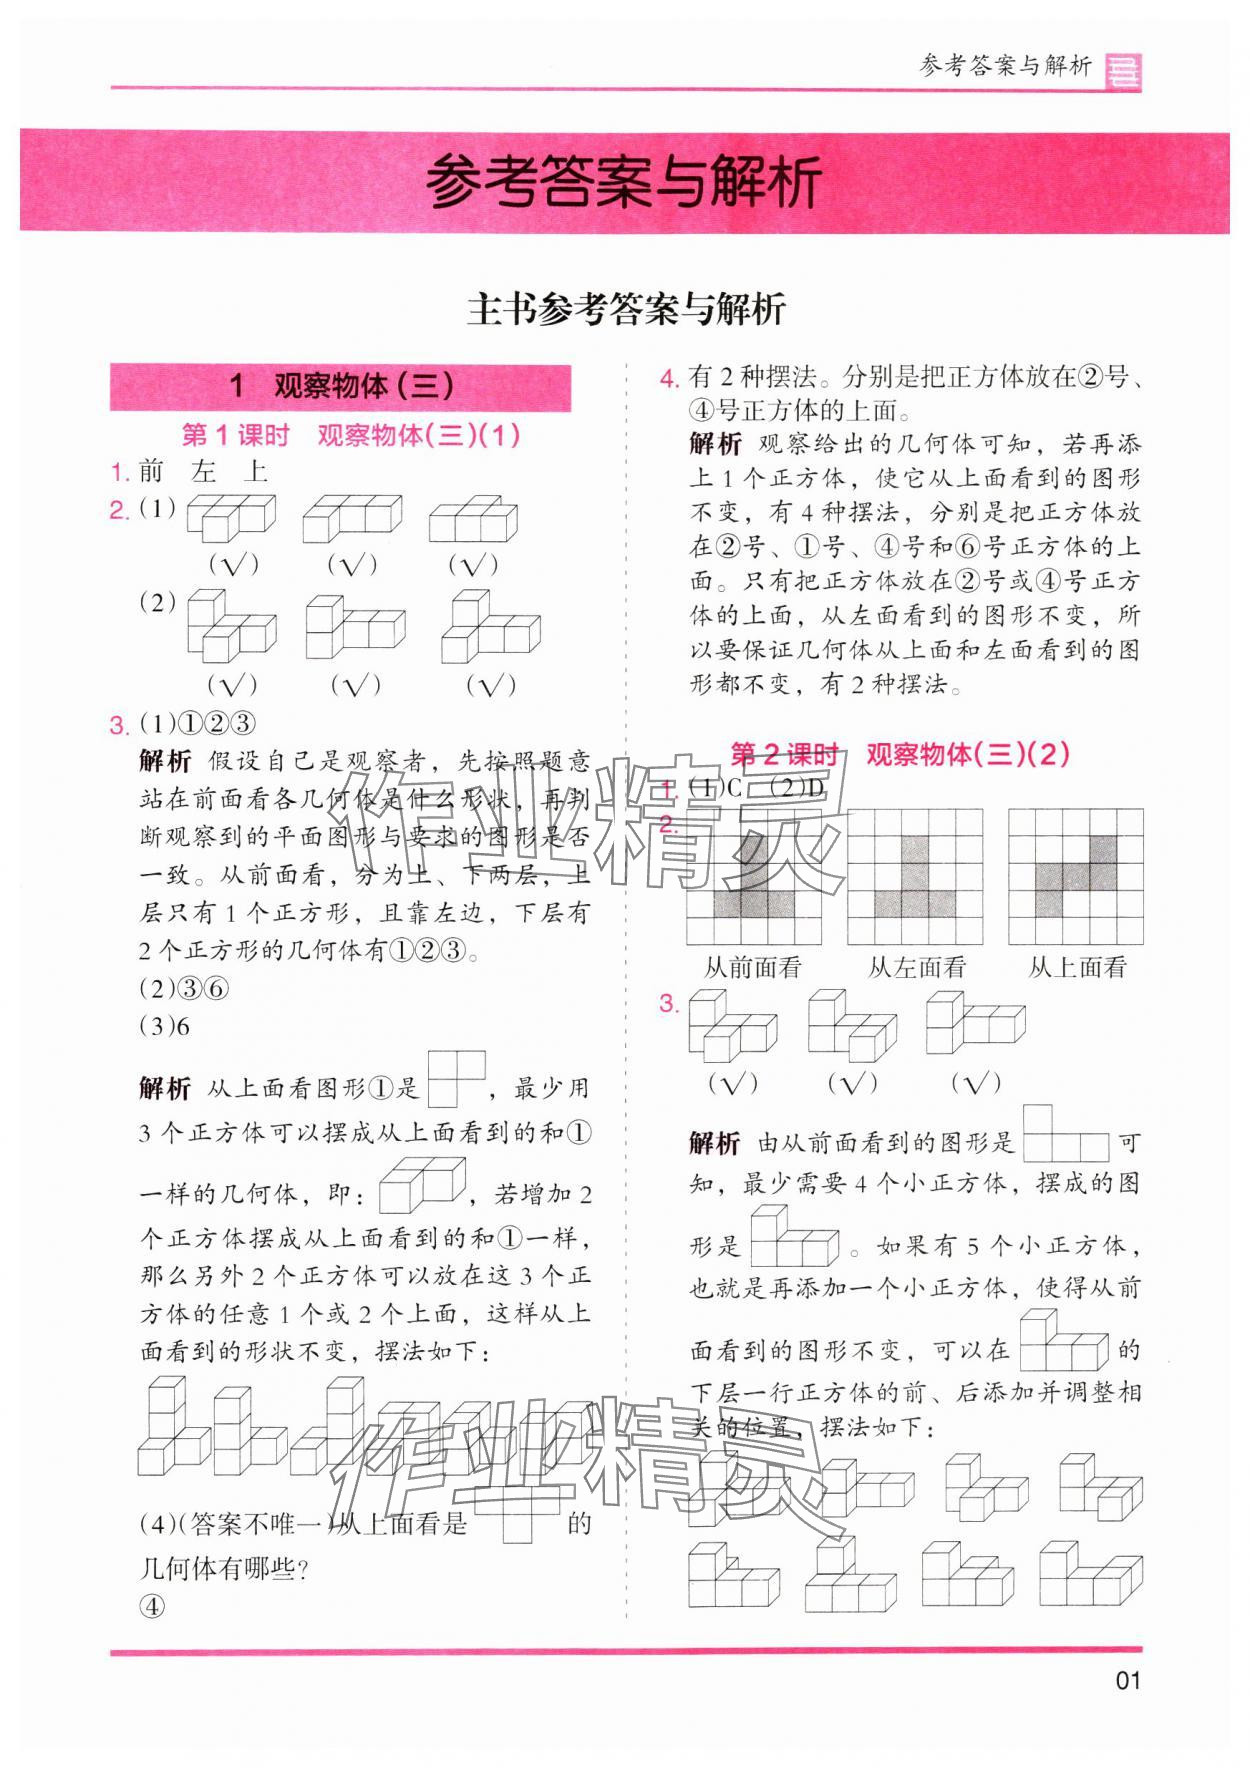 参考答案与解析
参考答案与解析
主书参考答案与解析
1 观察物体(三)
第1课时 观察物体(三)(1)
1. 前 左 上
2. (1)
(√) (√) (√)
(2)
(√) (√) (√)
3. (1)①②③
解析 假设自己是观察者，先按照题意
站在前面看各几何体是什么形状，再判
断观察到的平面图形与要求的图形是否
一致。从前面看，分为上、下两层，上
层只有1个正方形，且靠左边，下层有
2个正方形的几何体有①②③。
(2)③⑥
(3)6
解析 从上面看图形①是 ，最少用
3个正方体可以摆成从上面看到的和①
一样的几何体，即： ，若增加2
个正方体摆成从上面看到的和①一样，
那么另外2个正方体可以放在这3个正
方体的任意1个或2个上面，这样从上
面看到的形状不变，摆法如下：
(4)(答案不唯一)从上面看是 的
几何体有哪些?
④
4. 有2种摆法。分别是把正方体放在②号、
④号正方体的上面。
解析 观察给出的几何体可知，若再添
上1个正方体，使它从上面看到的图形
不变，有4种摆法，分别是把正方体放
在②号、①号、④号和⑥号正方体的上
面。只有把正方体放在②号或④号正方
体的上面，从左面看到的图形不变，所
以要保证几何体从上面和左面看到的图
形都不变，有2种摆法。
第2课时 观察物体(三)(2)
1. (1)C (2)D
2.
从前面看 从左面看 从上面看
3.
(√) (√) (√)
解析 由从前面看到的图形是 可
知，最少需要4个小正方体，摆成的图
形是 。如果有5个小正方体，
也就是再添加一个小正方体，使得从前
面看到的图形不变，可以在 的
下层一行正方体的前、后添加并调整相
关的位置，摆法如下：
作业精灵
作业精灵
01